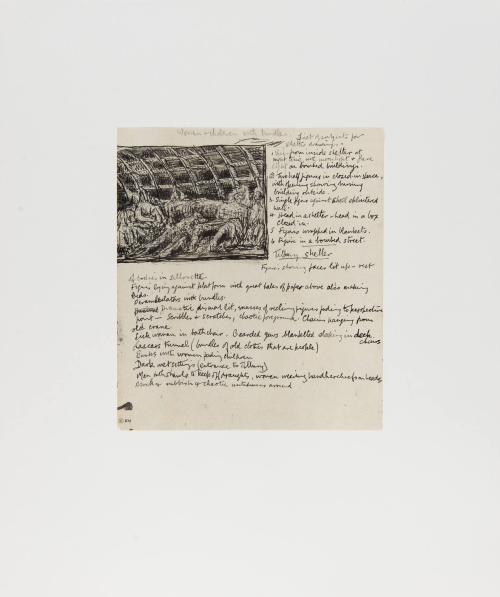 Women & children with bundles.
List of subjects for
shelter drawings.
1 from inside shelter at
with moonlight &
on bombed buildings.
2 Two half figures in closed in
with opening showing burning
building outside.
3. Single figure against splintered
wall.
4. Head in a shelter - head in a box
closed in.
5 Figures wrapped in blankets.
6 Figure in a bombed street.
Tilbury shelter
Figures showing faces lit up - rest
of bodies in silhouette
Figures lying against platform with great bales of paper above also making
Beds.
Perambulators with bundles.
Dramatic, dismal lit, masses of reclining figures fading to perspective
point - Scribbles & scratches, chaotic foreground. Chains hanging from
old crane.
Sick woman in bath chair. Bearded Jews blanketted sleeping in deck
chairs
Lascars Tunnel (bundles of old clothes that are people)
Bunks with women feeding children
Dark wet settings (entrance to Tilbury)
Men with shawls to keep off draughts, women wearing handkerchiefs on heads
Muck & rubbish & chaotic untidiness around